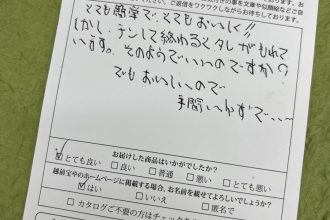 ご返信をワクワクしながらお待ちしております。
とても簡単で、とてもおいしく!!
しかし、チンして終わるとタレがもれて
います。そのようでいいのですか?
でもおいしいので
お届けした商品はいかがでしたか?
☑とても良い □良い □普通 □悪い □とても悪い
越前宝やのホームページに掲載する場合、お名前を載せてよろしいでしょうか?
☑はい □いいえ □匿名で
□カタログご不要の方はチェックを